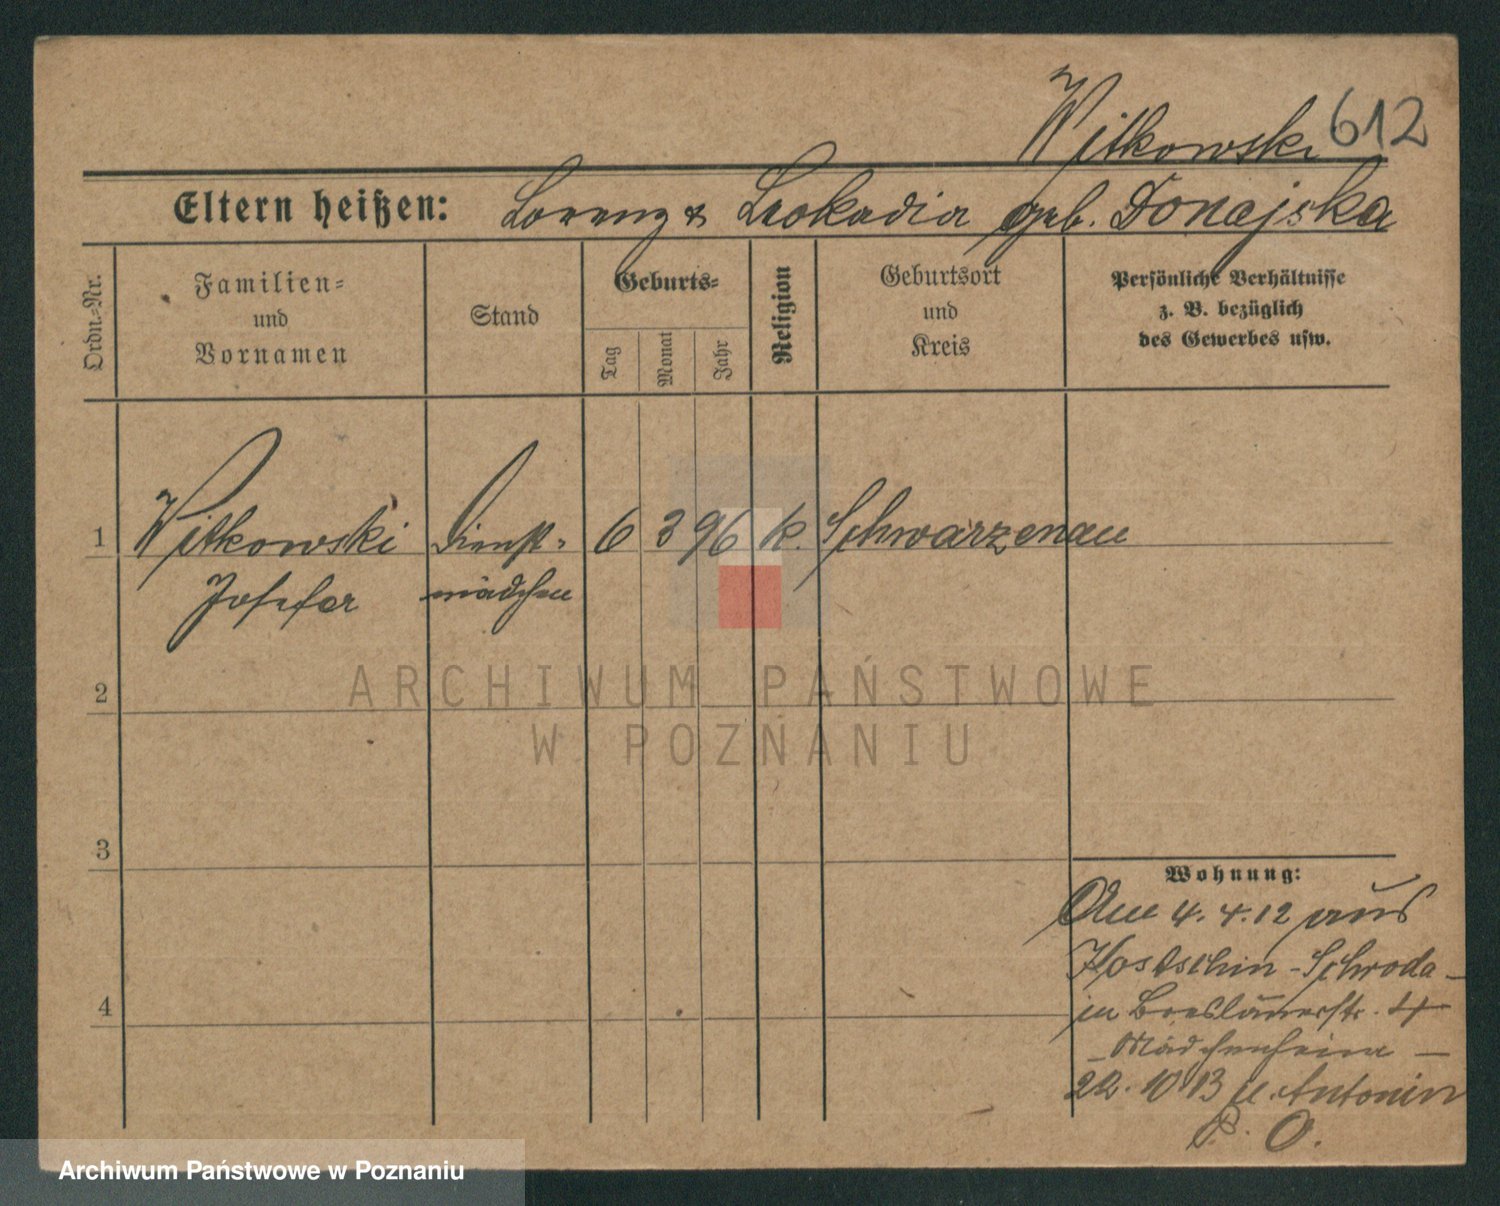 Witkowski 612
Eltern heißen: Lorenz & Leokadia geb. Donajska
Ordn.-Nr.
Familien- und Vornamen
Stand
Geburts-
Tag
Monat
Jahr
Religion
Geburtsort und Kreis
Persönliche Verhältnisse
z. B. bezüglich
des Gewerbes usw.
1 Witkowski Dienst- 6 3 96 k. Schwarzenau
Josefa mädchen
2
ARCHIWUM PAŃSTWOWE
W POZNANIU
3
Wohnung:
Am 4.4.12 aus
Kostschin - Schroda -
in Breslauerstr. 4
- Mädchenheim -
22.10.13 n. Antonin
P. O.
4
Archiwum Państwowe w Poznaniu